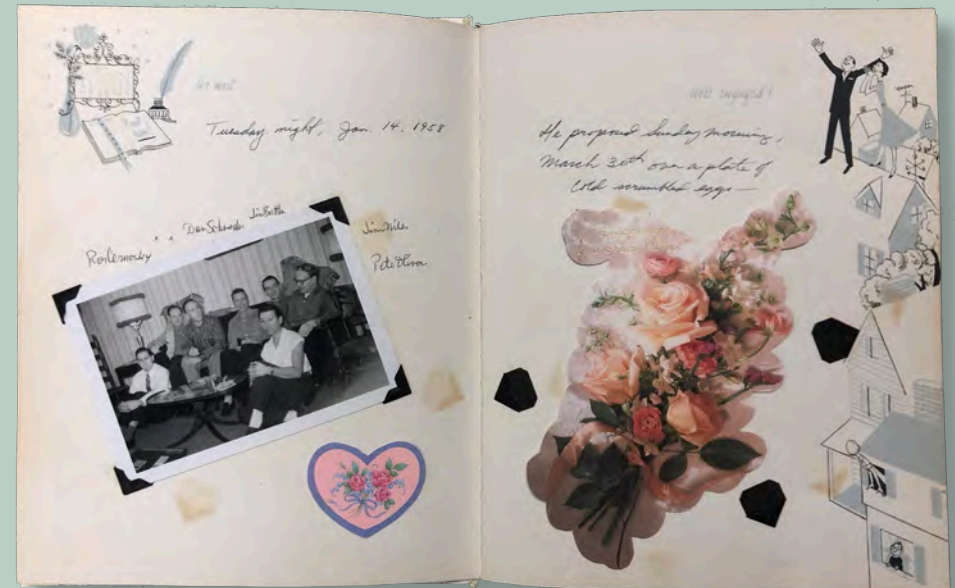 we met
Tuesday night, Jan. 14, 1958
Jim
Don Schrader
Jim
Pete
were engaged!
He proposed Sunday morning,
March 30th over a plate of
cold scrambled eggs—